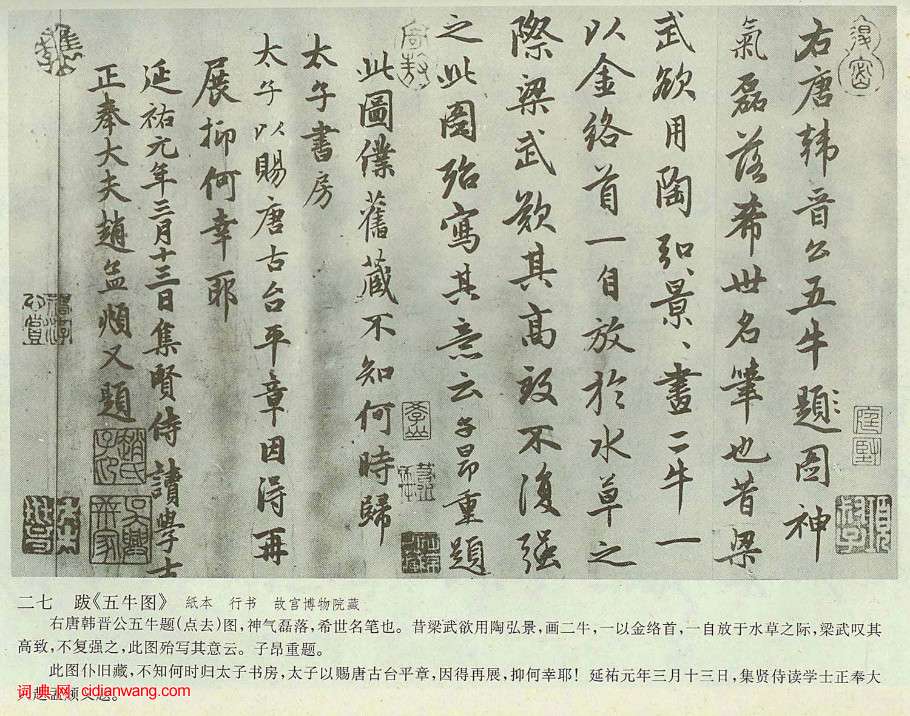 右唐韓晉公五牛題圖神
氣磊落希世名筆也昔梁
武欲用陶弘景、畫二牛一
以金絡首一自放於水草之
際梁武歎其高致不復强
之此圖殆寫其意云子昂重題
此圖僕舊藏不知何時歸
太子書房
太子以賜唐古台平章因得再
展抑何幸耶
延祐元年三月十三日集賢侍讀學士
正奉大夫趙孟頫又題
二七 跋《五牛图》 紙本 行书 故宫博物院藏
右唐韩晋公五牛题(点去)图,神气磊落,希世名笔也。昔梁武欲用陶弘景,画二牛,一以金络首,一自放于水草之际,梁武叹其
高致,不复强之,此图殆写其意云。子昂重题。
此图仆旧藏,不知何时归太子书房,太子以赐唐古台平章,因得再展,抑何幸耶!延祐元年三月十三日,集贤侍读学士正奉大
词典网 cidianwang.com